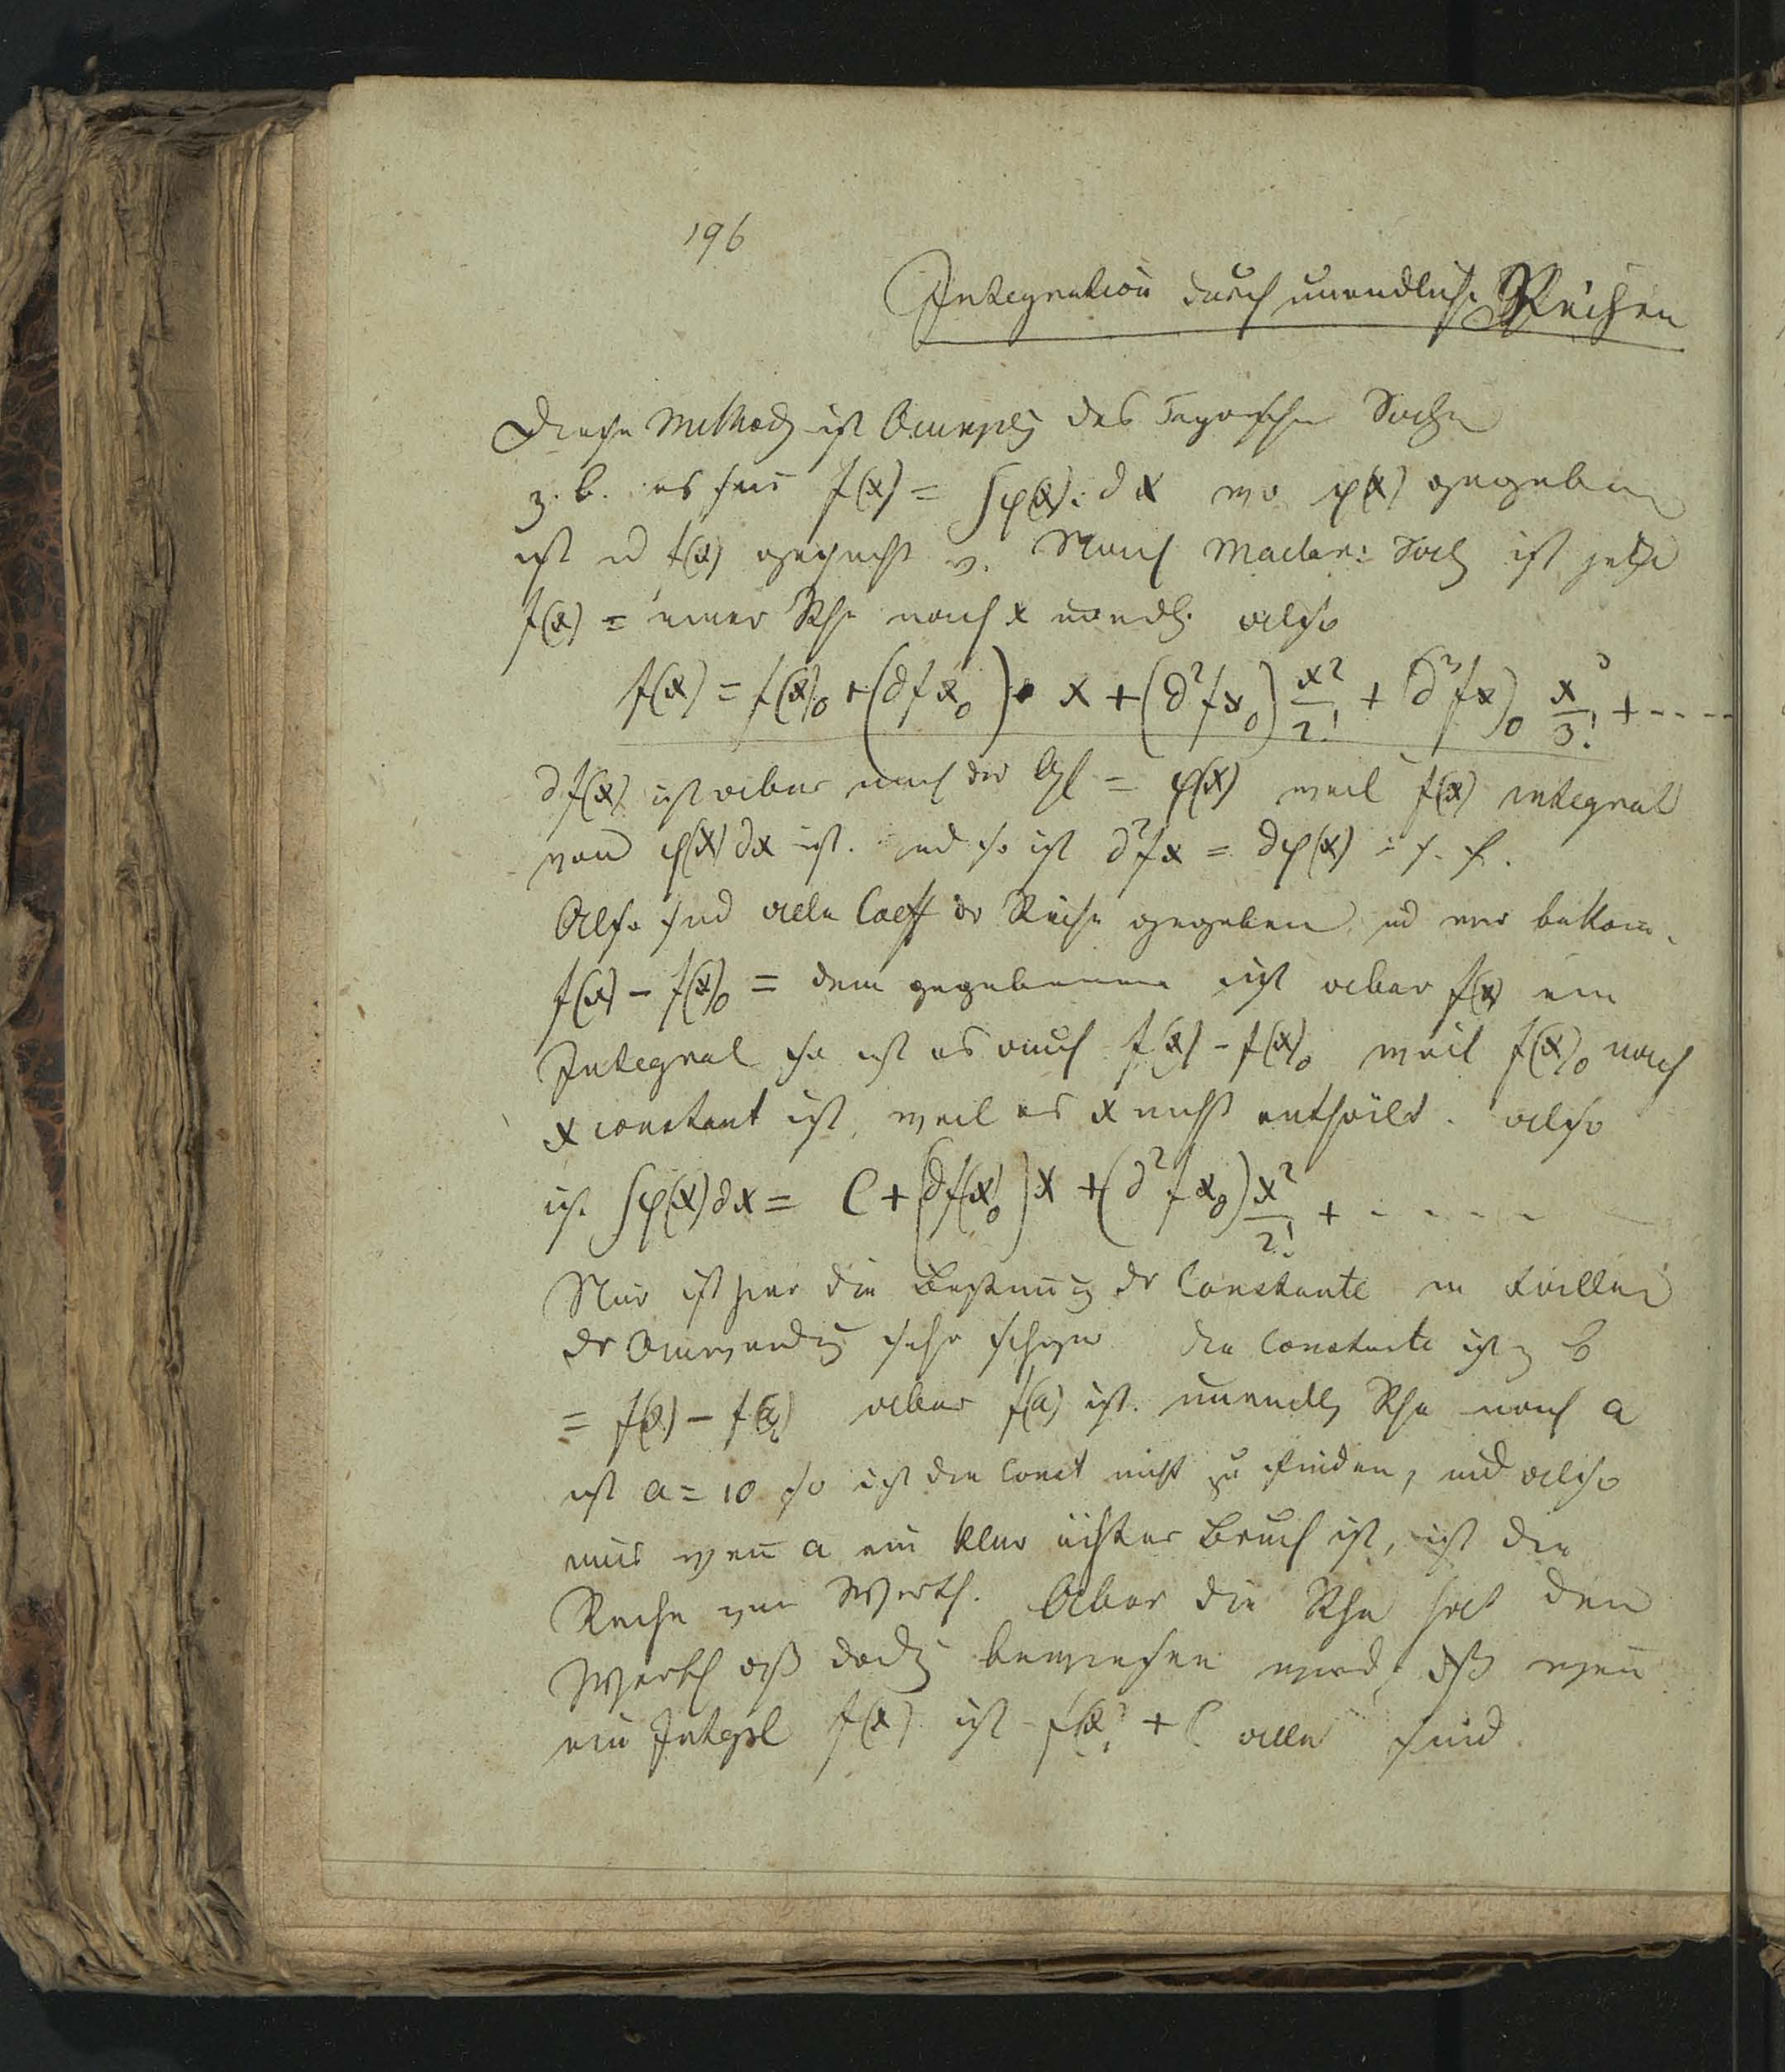 196
Integration durch unendliche Reihen
Diese Methode ist Anwendg des Taylorschen Satzes
z. b. es sei f(x) = ∫φ(x).dx wo φ(x) gegeben
ist u f(x) gesucht w. Nach Maclar: Satz ist jetzt
f(x) = einer Rhe nach x unendl. also
f(x) = f(x)₀ + (∂fx₀) . x + (∂²fx₀) x²/2! + (∂³fx)₀ x³/3! + - - - -
∂f(x) ist aber nach der Gl = φ(x) weil f(x) integral
von φ(x)∂x ist. und so ist ∂²fx = ∂φ(x) s. f.
Also sind alle Coeff dr Reihe gegeben und wir bekom.
f(x) - f(x)₀ = dem gegebenen ist aber f(x) ein
Integral so ist es auch f(x) - f(x)₀ weil f(x)₀ nach
x constant ist, weil es x nicht enthält. also
ist ∫φ(x)∂x = C + (∂f(x)₀)x + (∂²fx₀) x²/2! + - - - -
Nur ist hier die Bestimung dr Constante in
dr Anwendg sehr schwer die Constante ist z b
= f(0) - f(a) aber f(a) ist unendl Rhe nach a
ist a = 10 so ist die Const nicht zu finden, und also
nur wen a ein klar ächter Bruch ist, ist die
Reihe von Werth. Aber die Rhe hat den
Werth daß dadch bewiesen wird, dß wen
ein Integral f(x) ist f(x) + C alle sind.